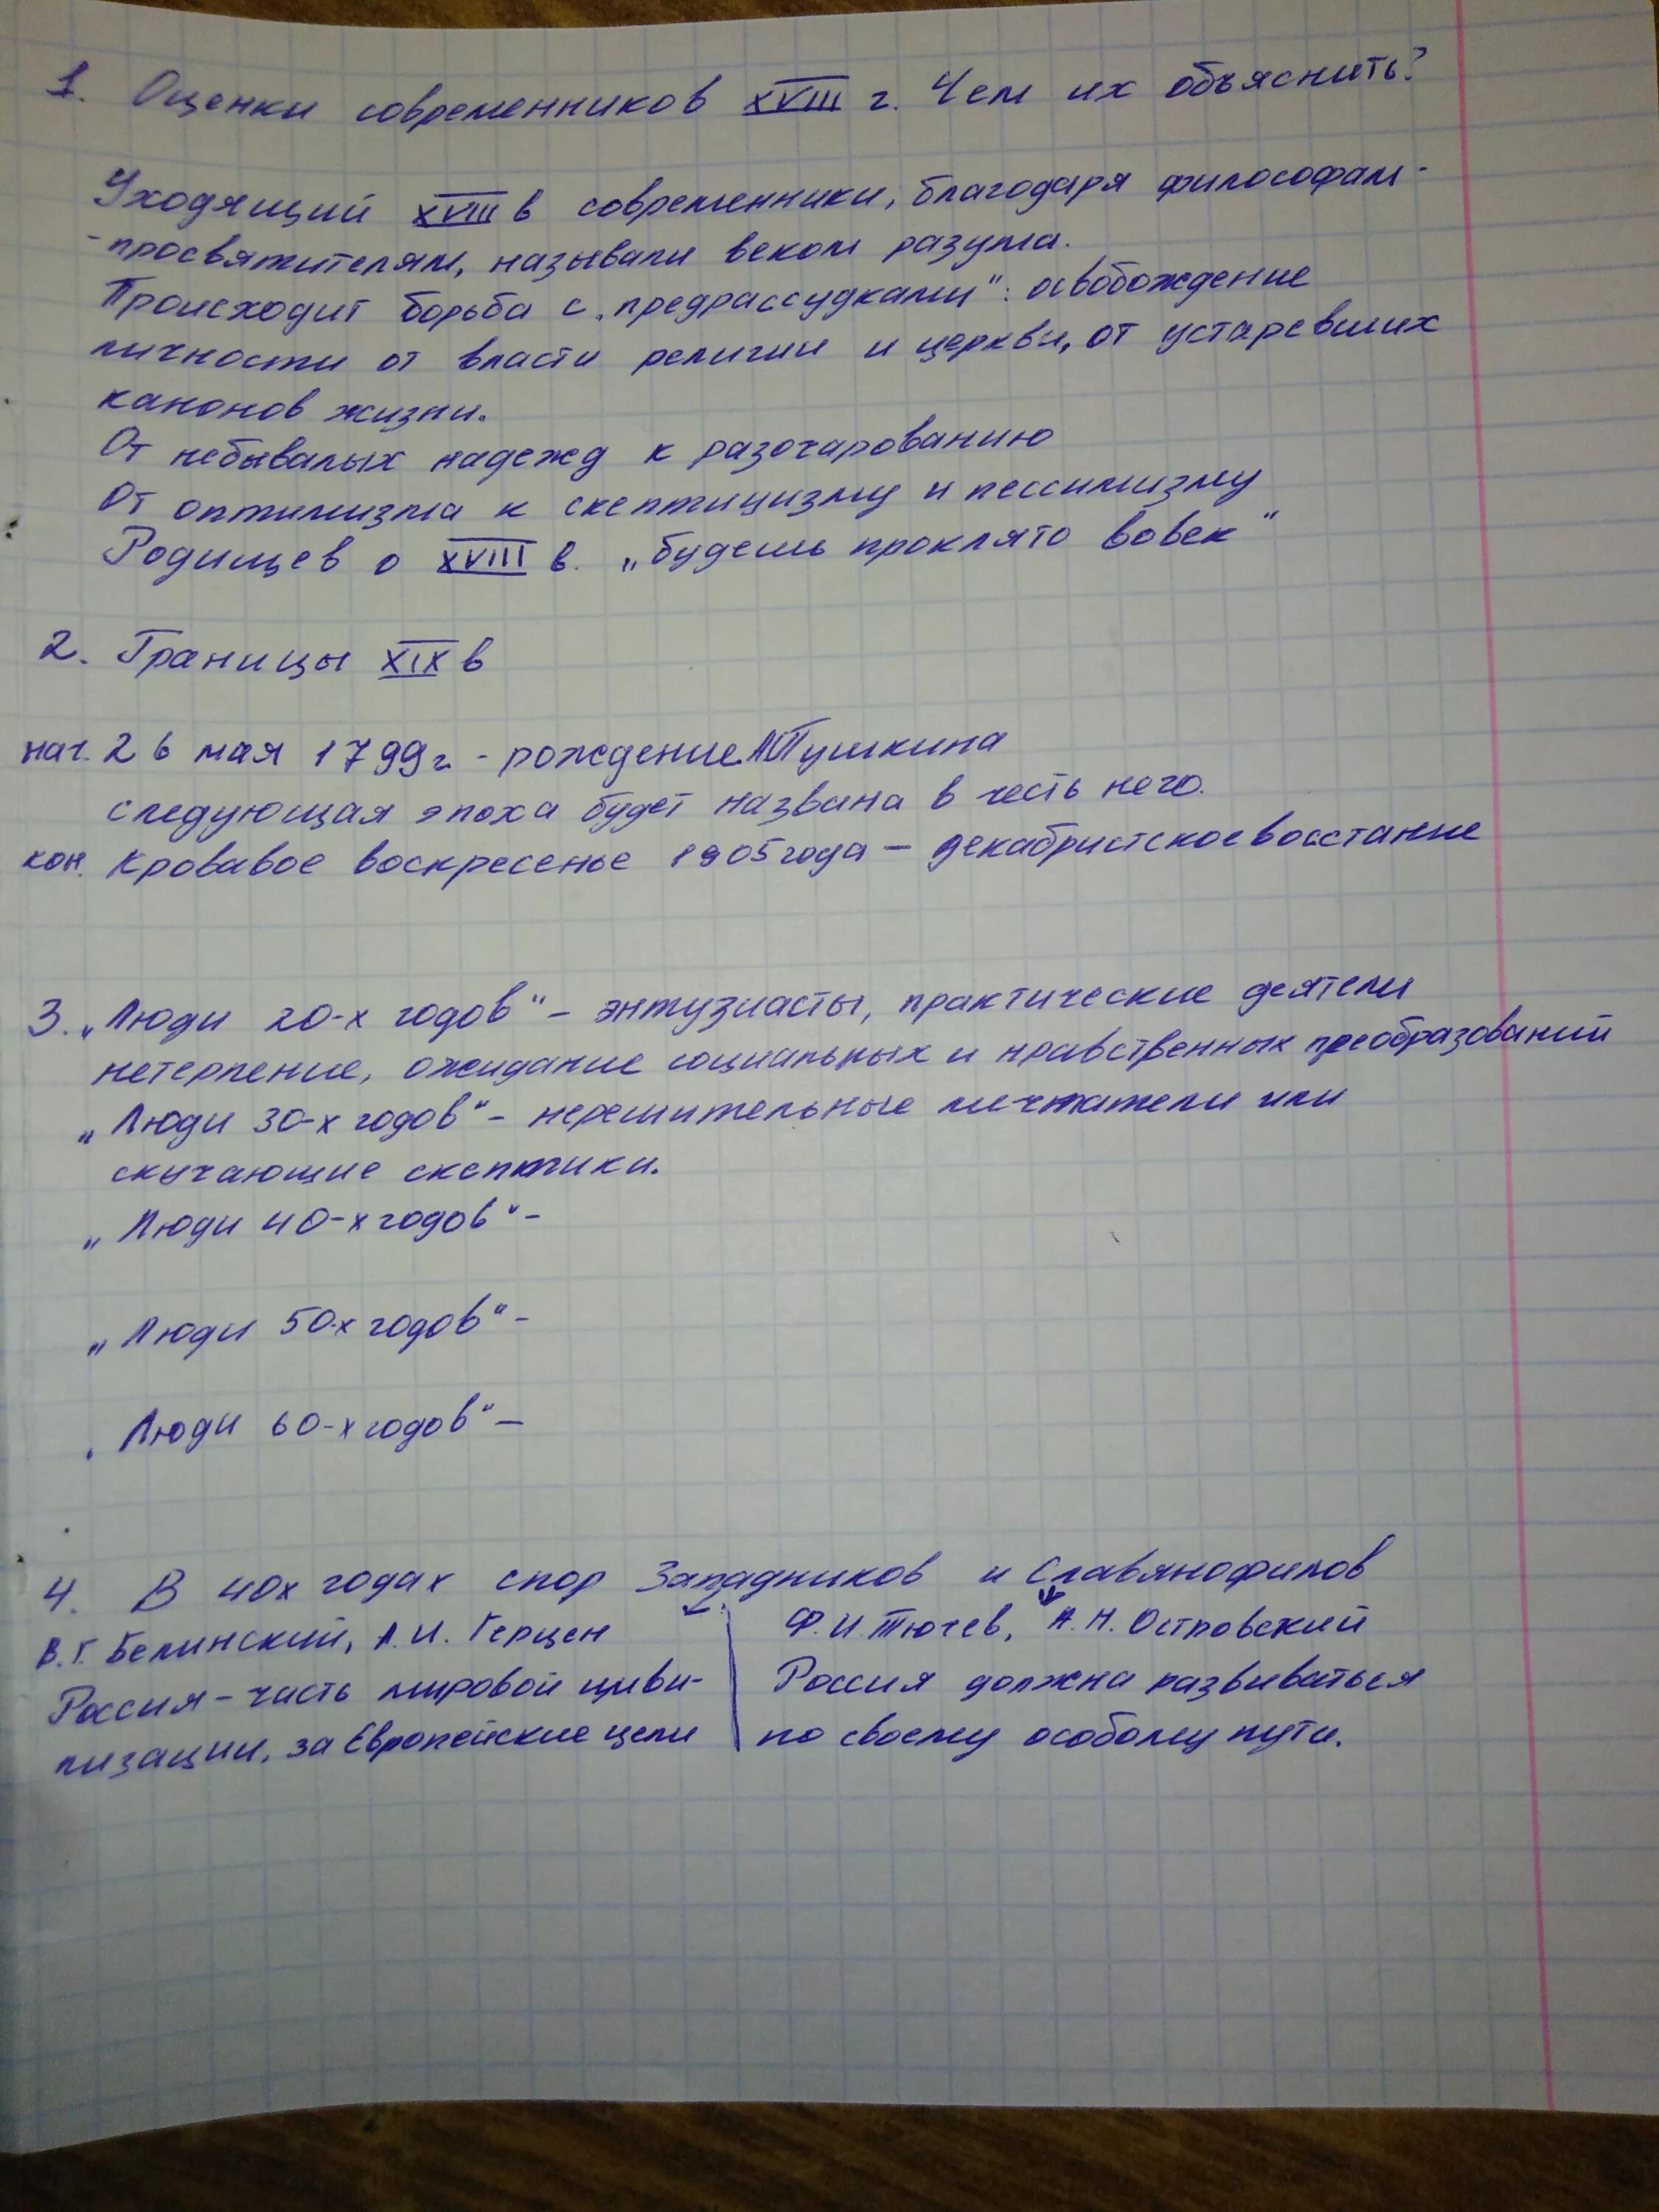 1. Оценки современников XVIII г. Чем их объяснить?
Уходящий XVIII в современники, благодаря философам-
-просвятителям, называли веком разума.
Происходит борьба с „предрассудками": освобождение
личности от власти религии и церкви, от устаревших
канонов жизни.
От небывалых надежд к разочарованию
От оптимизма к скептицизму и пессимизму
Родищев о XVIII в. „будешь проклято вовек"
2. Границы XIX в
нач. 26 мая 1799 г. - рождение А.С Пушкина
следующая эпоха будет названа в честь него.
кон. Кровавое воскресенье 1905 года – декабристское восстание
3. „Люди 20-х годов" – энтузиасты, практические деятели
нетерпение, ожидание социальных и нравственных преобразований
„Люди 30-х годов" – нерешительные мечтатели или
скучающие скептики.
„Люди 40-х годов" –
„Люди 50-х годов" –
„Люди 60-х годов" –
4. В 40х годах спор Западников и Славянофилов
В.Г. Белинский, А.И. Герцен
Россия – часть мировой циви-
лизации, за Европейские цели
Ф.И. Тютев, А.Н. Островский
Россия должна развиваться
по своему особому пути.